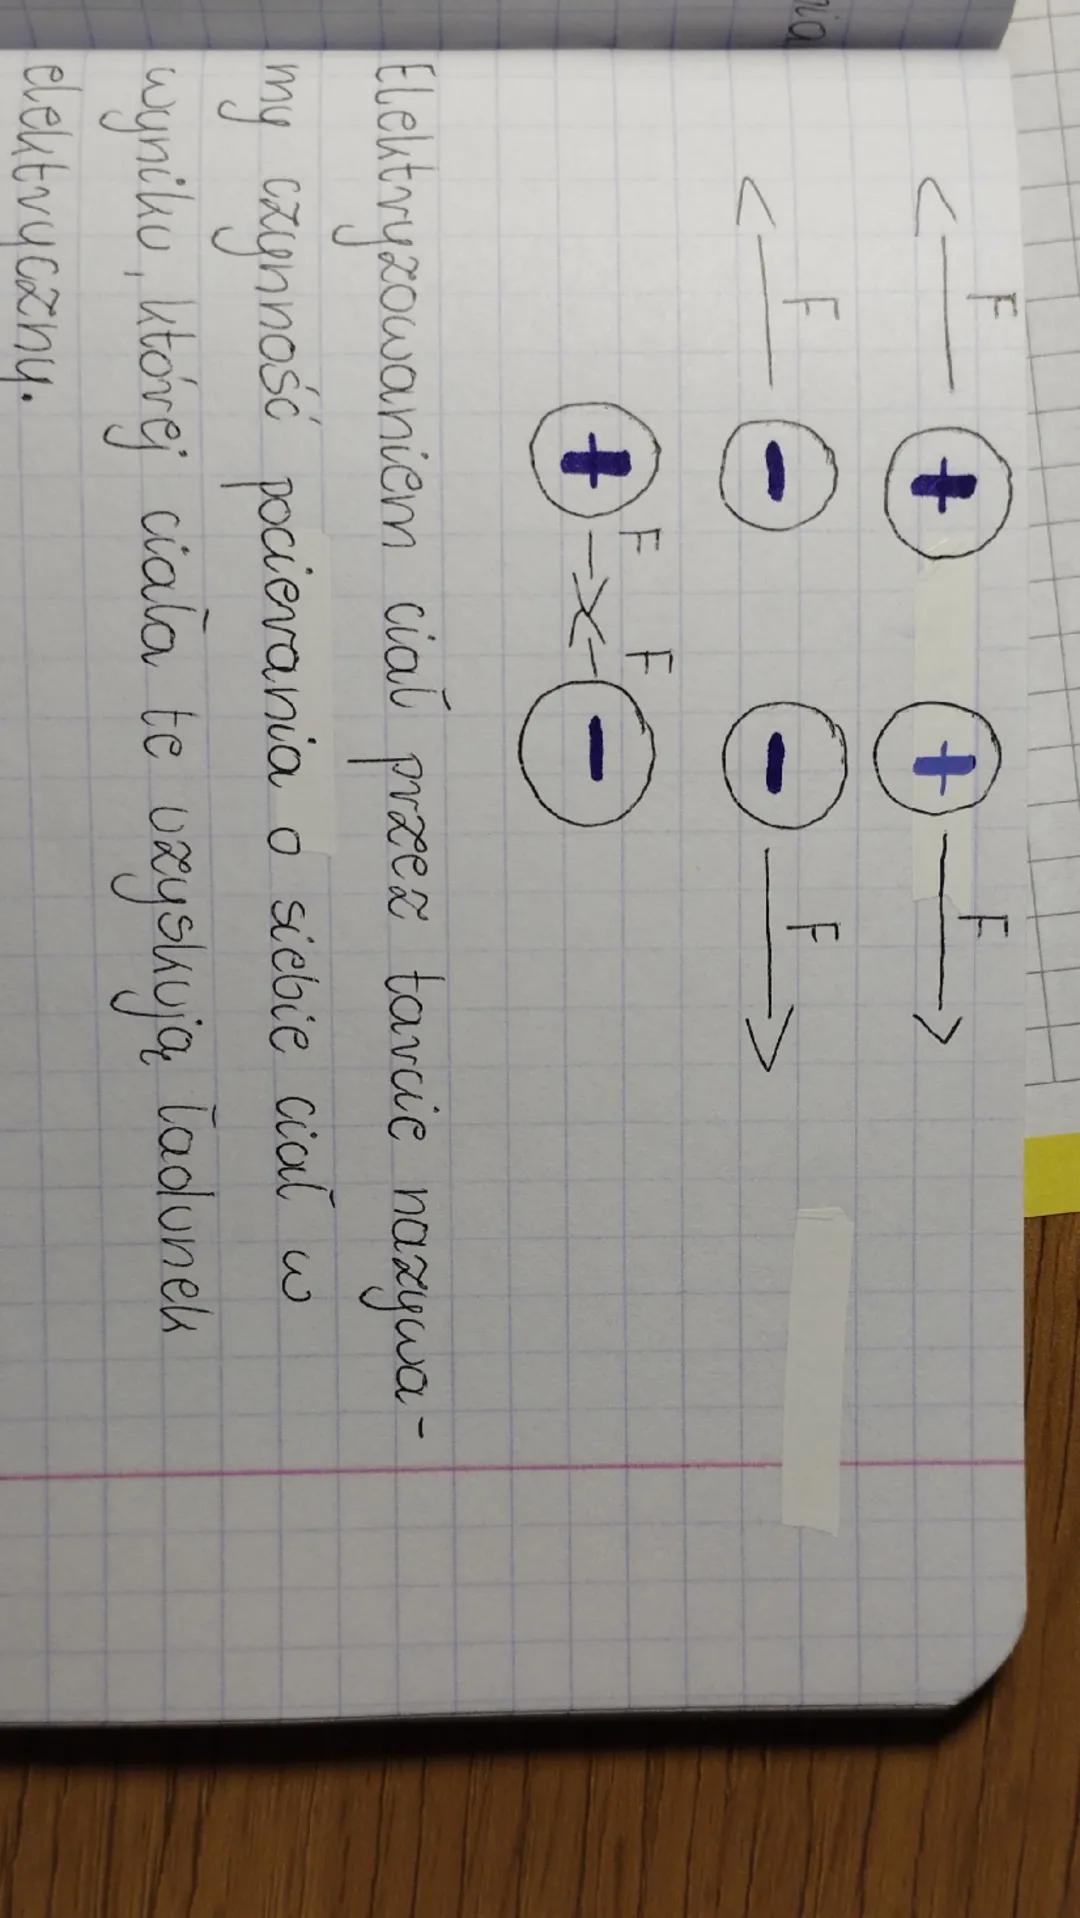 nia
F F
+ +
F F
- -
F F
+ -
Elektryzowaniem ciał przez tarcie nazywa-
my czynność pocierania o siebie ciał w
wyniku, której ciała te uzyskują ładunek
elektryczny.